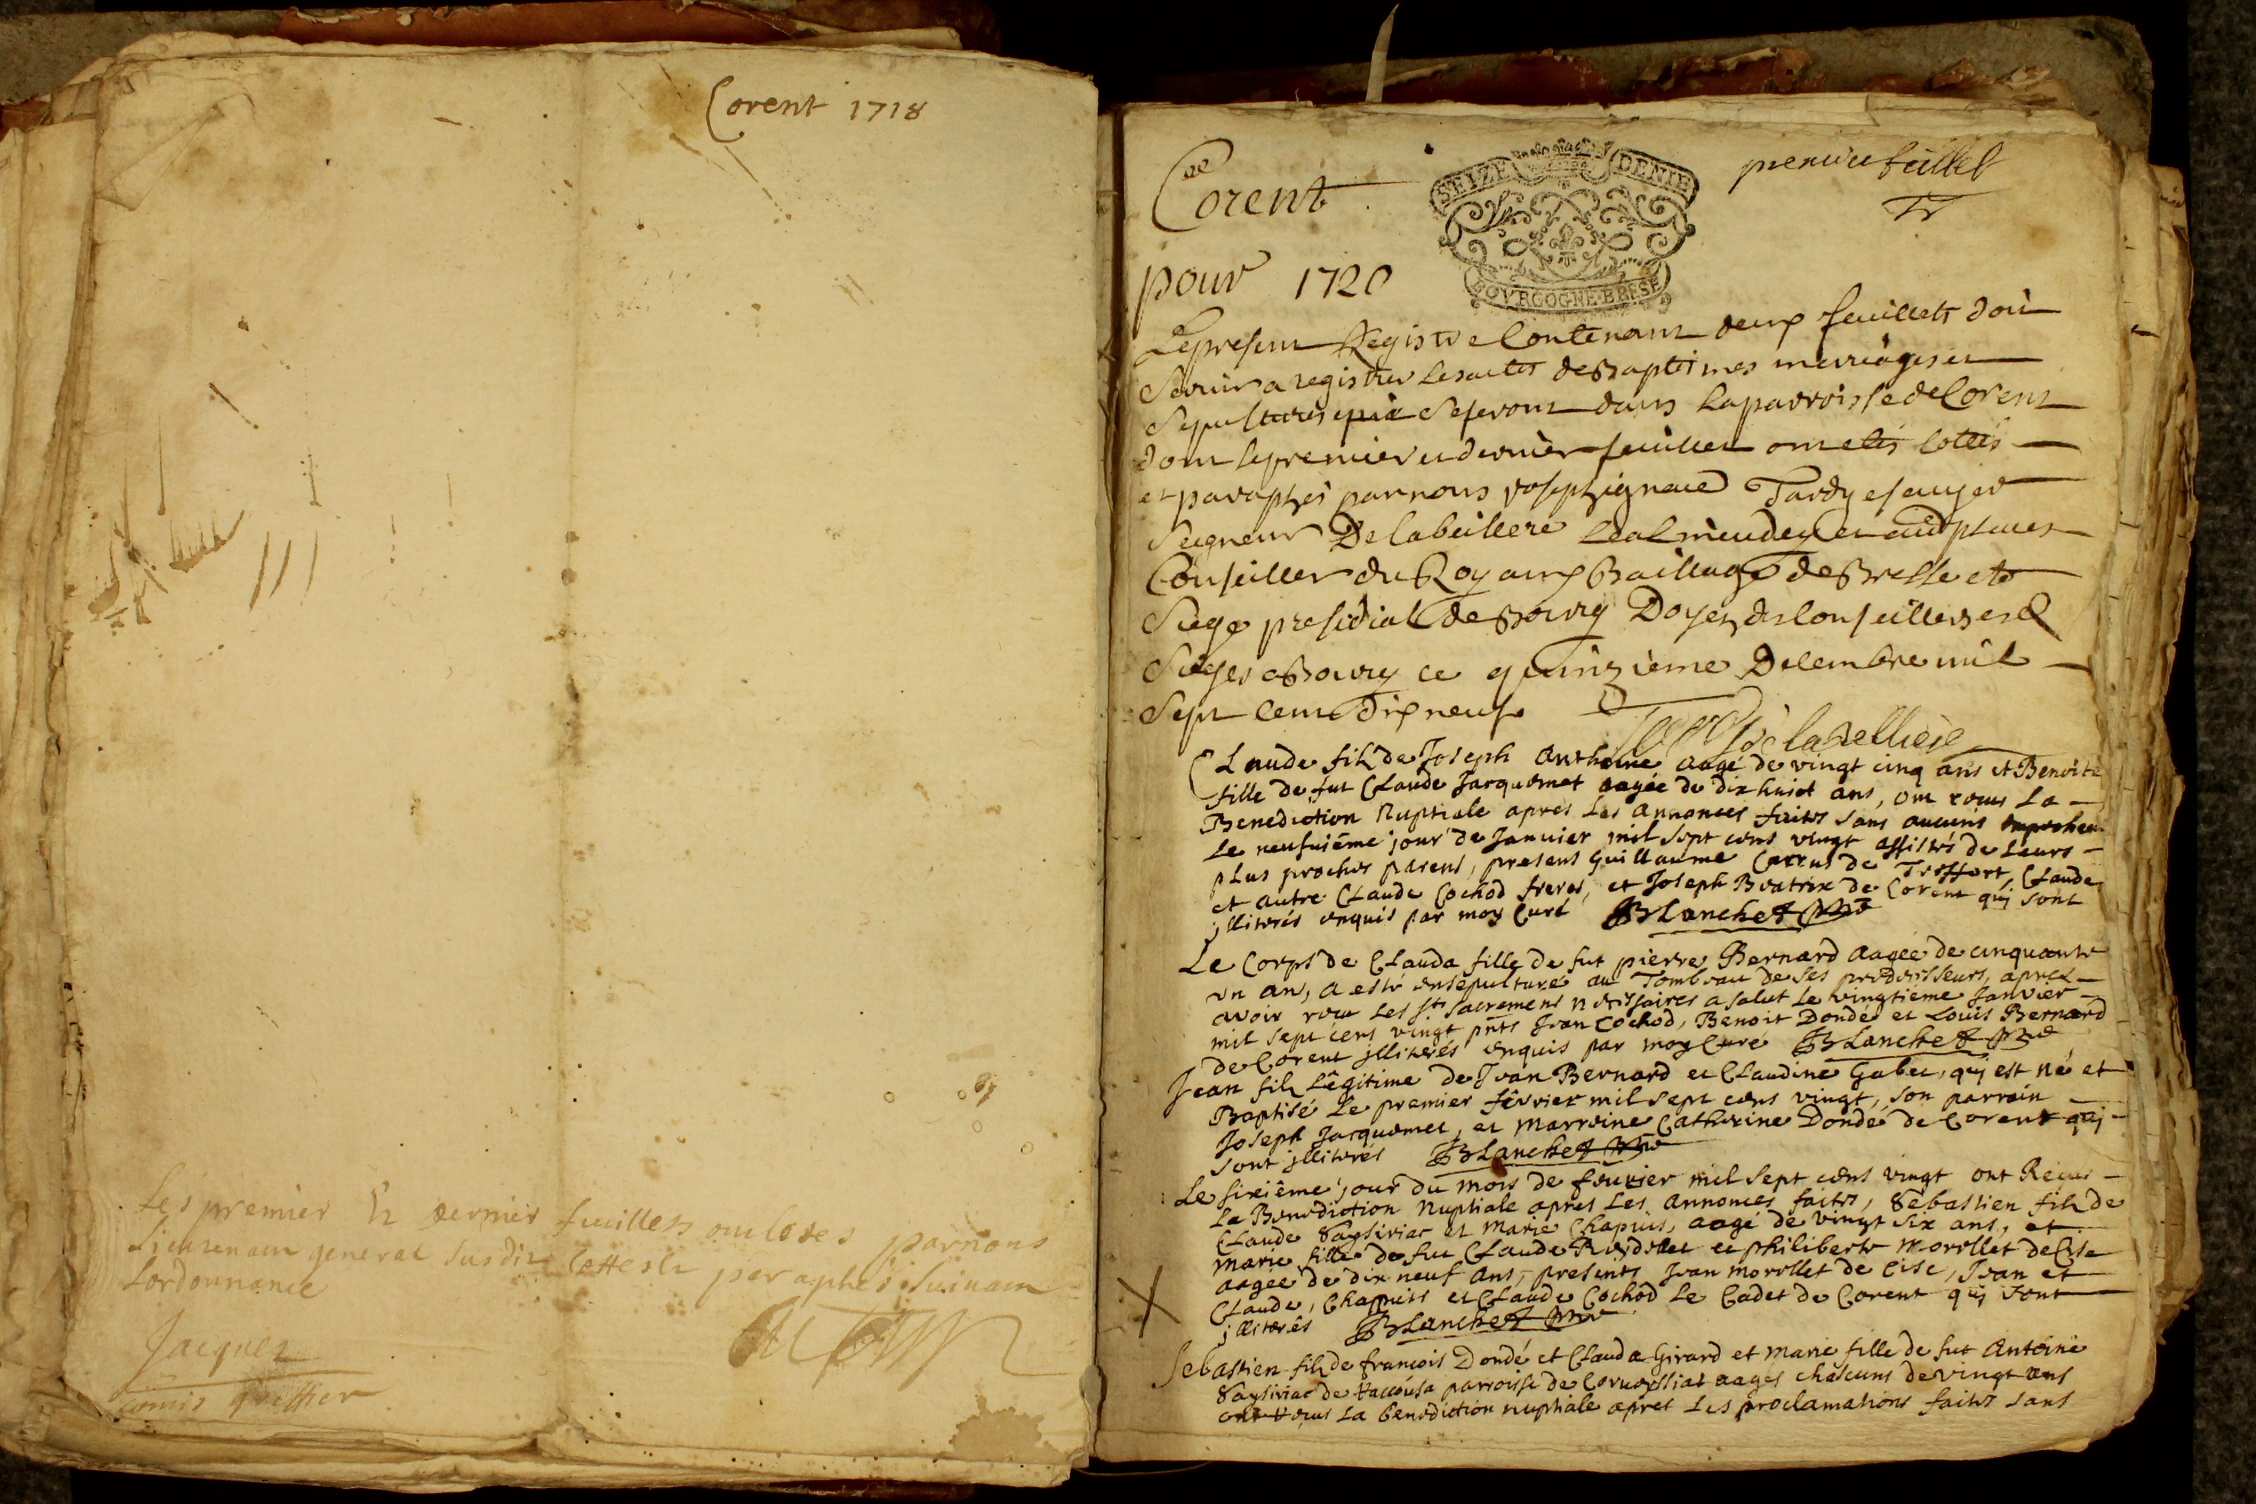 Corent 1718
Les premier & dernier feuillets on cotes parnous
Lieutenant general susdit cottes & paraphés suivant
Lordonnance
Jacques
comis greffier
Corent
SEIZE DENIE
BOVRGOGNE·BRESE
premier feüillet
pour 1720
Le present Registre Contenant deux feuillets doit
Servir a registrer les actes de Baptesmes mariages et
Sepultures qui se feront dans la parroisse de Corent
dont le premier et dernier feuillet ont etés cottés
et paraphés par nous Joseph ignace Tardy escuyer
Seigneur De la beillere et autres places
Conseiller du Roy aux Bailliage de Bresse et
Siege presidial de Bourg Doyen des Conseillers esd
Sieges a Bourg ce quinzieme Decembre mil
Sept Cent dix neuf
Tardy de la bellíere
Claude fils de Joseph Anthoine aagé de vingt cinq ans et Benoite
fille de fut Claude Jacquemet aagée de dix huict ans, ont receus La
Benediction Nuptiale apres Les annonces faites sans aucuns
Le neufuiême jour de Janvier mil sept cens vingt assistés de Leurs
plus proches parens, presens Guillaume Carrus de Treffort, Claude
et autre Claude Cochod freres, et Joseph Beatrix de Corent qui sont
jlliterés enquis par moy Curé Blanchet
Le Corps de Clauda fille de fut pierre Bernard aagée de cinquante
un an, a esté ensepulturé au Tombeau de ses predecesseurs, apres
avoir receu Les sts sacremens necessaires a salut Le vingtieme Janvier
mil sept cens vingt pnts Jean Cochod, Benoit Dondé et Louis Bernard
de Corent jlliterés enquis par moy Curé Blanchet
Jean fils Lêgitime de Jean Bernard et Claudine Gabet, qui est né et
Baptisé Le premier fêvrier mil sept cens vingt, son parrain
Joseph Jacquemet, et Marreine Catherine Dondé de Corent qui
sont jlliterés Blanchet
Le sixiême jour du mois de fevrier mil sept cens vingt ont Recus
La Benediction Nuptiale apres Les annonces faites, Sebastien fils de
Claude Saysiriac et Marie Chapuis, aagé de vingt six ans, et
Marie fille de fut Claude Reydellet et philiberte Morellet de Cise
aagee de dix neuf ans, presents Jean Morellet de Cise, Jean et
Claude, Chapuits et Claude Cochod Le Cadet de Corent qui sont
jlliterés Blanchet
Sebastien fils de francois Dondé et Clauda Girard et Marie fille de fut Antoine
Saysiriac de parroisse de Corveyssiat aagés chascuns de vingt ans
ont receus La benediction nuptiale apres Les proclamations faites sans